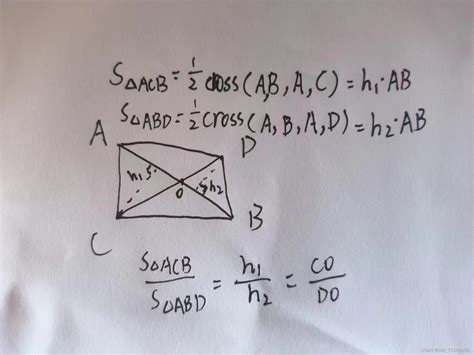 S△ACB = 1/2 cross(A,B,A,C) = h₁·AB
S△ABD = 1/2 cross(A,B,A,D) = h₂·AB
A
D
h₁
h₂
O
B
C
S△ACB / S△ABD = h₁ / h₂ = CO / DO